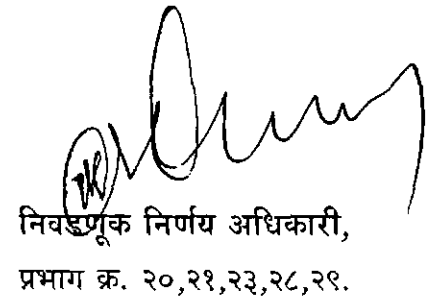 निवडणूक निर्णय अधिकारी,
प्रभाग क्र. २०,२१,२३,२८,२९.